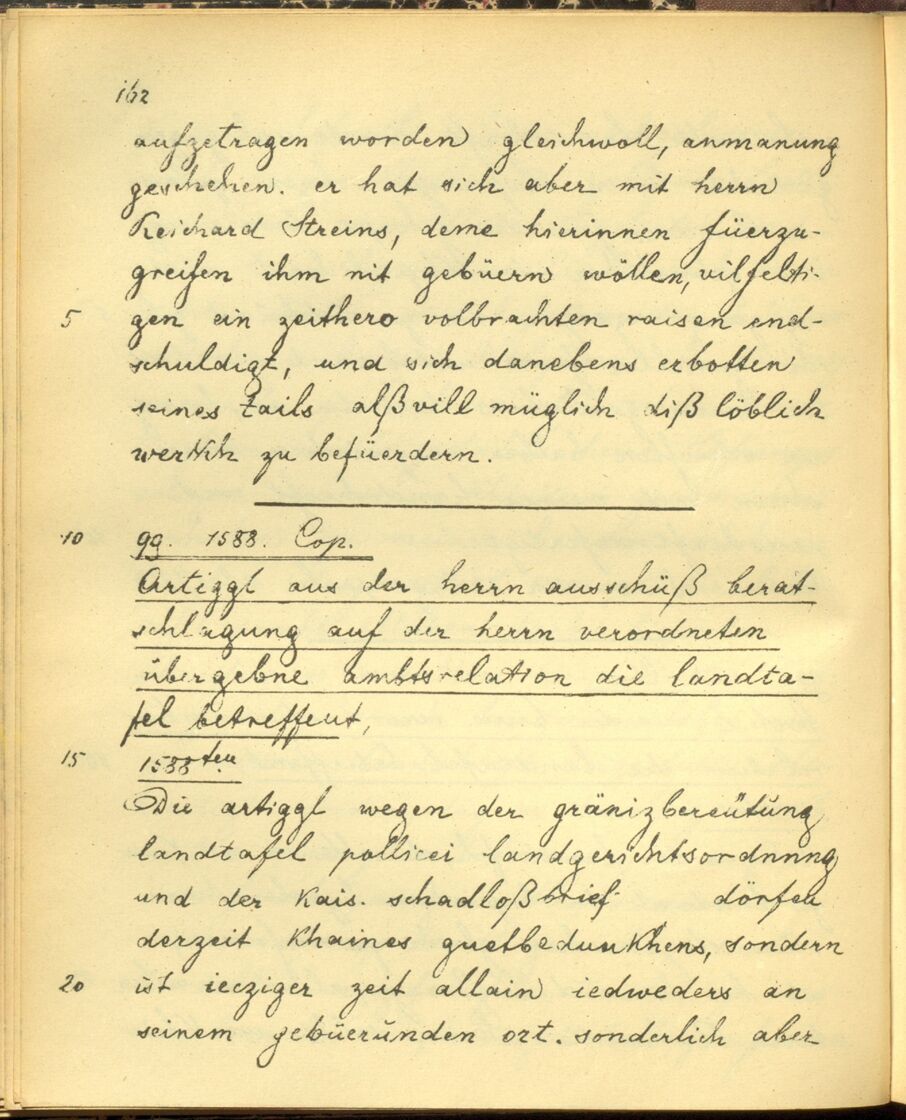 162
aufzetragen worden gleichwoll, anmanung
geschehen. er hat sich aber mit herrn
Reichard Streins, deme hierinnen füerzu-
greifen ihm nit gebüern wöllen, vilfelti-
5 gen ein zeithero volbrachten raisen end-
schuldigt, und sich danebens erbotten
seines tails alßvill müglich diß löblich
werkh zu befüerdern.
10 gg. 1588. Cop.
Artiggl aus der herrn ausschüß berat-
schlagung auf der herrn verordneten
übergebne ambtsrelation die landta-
fel betreffent,
15 1588ten
Die artiggl wegen der gränizbereütung
landtafel pollicei landgerichtsordnnng
und der kais. schadloßbrief dörfen
derzeit khaines guetbedunkhens, sondern
20 ist iecziger zeit allain iedweders an
seinem gebüerunden ort. sonderlich aber